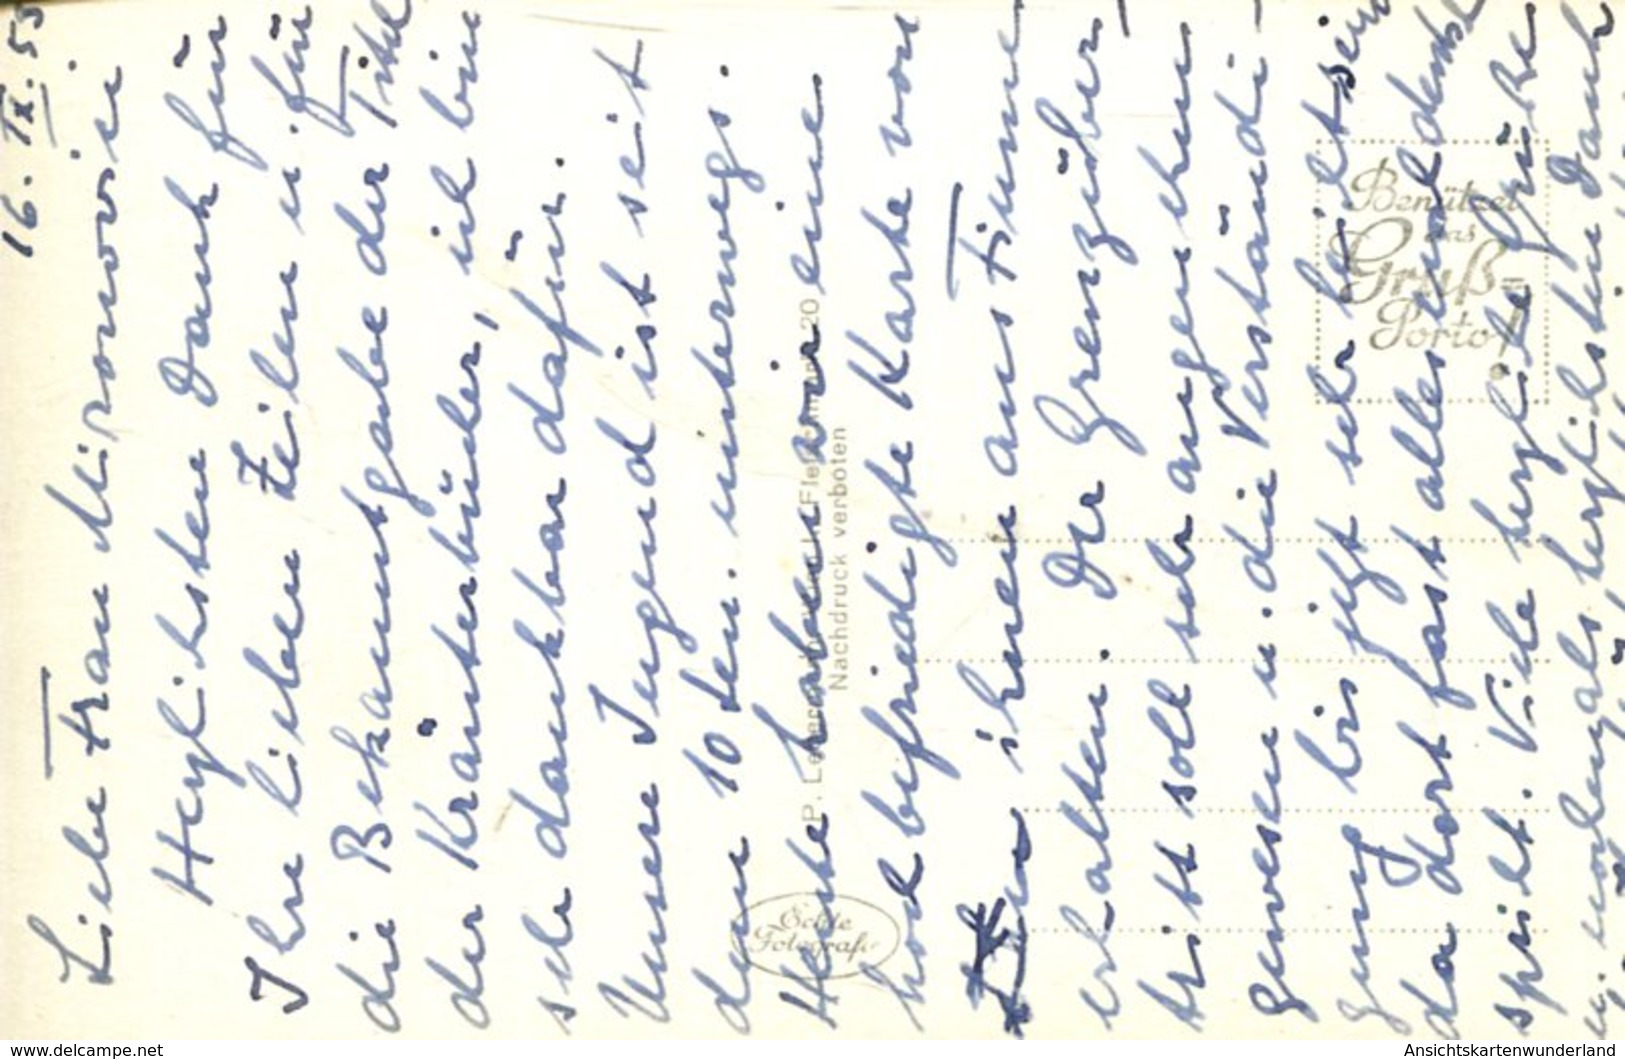 16. IX. 53
Liebe Frau Mironovici
Herzlichsten Dank für
Ihre lieben Zeilen u. für
die Bekanntgabe der Titel
der Kräuterbücher, ich bin
sehr dankbar dafür.
Unsere Jugend ist seit
dem 10ten. unterwegs.
Heute haben wir eine
hochbefriedigte Karte von
ihnen aus Fiume
erhalten. Der Grenzüber-
tritt soll sehr angenehm
gewesen u. die Verständi-
gung bis jetzt sehr leicht sein
da dort fast alles deutsch
spricht. Viele herzliche Grüße
u. nochmals herzlichsten Dank
Benützet
das
Gruß-
Porto!
Echte
Fotografie
Nachdruck verboten
www.delcampe.net
Ansichtskartenwunderland